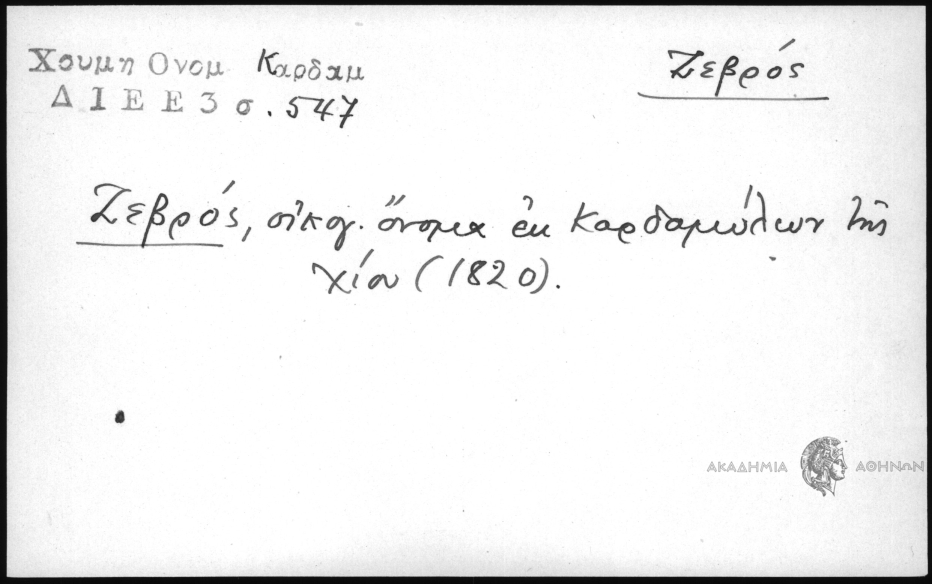 Χουμη Ονομ Καρδαμ
Ζεβρός
ΔΙΕΕ 3 σ. 547
Ζεβρός, οἰκογ. ὄνομα ἐκ Καρδαμύλων τῆς
Χίου (1820).
ΑΚΑΔΗΜΙΑ ΑΘΗΝΩΝ